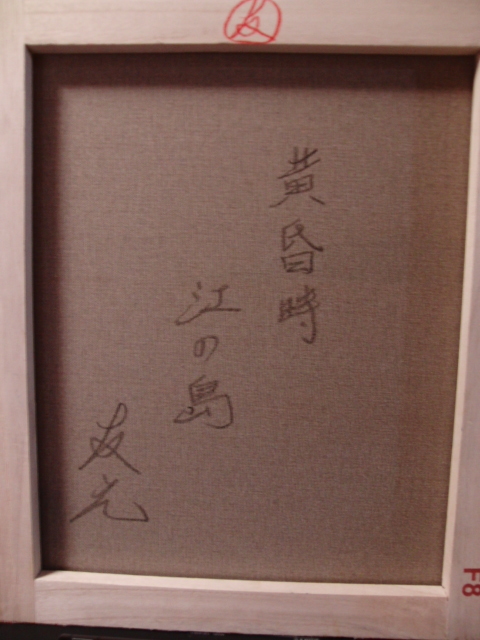 友
黄昏時
江の島
友光
F8